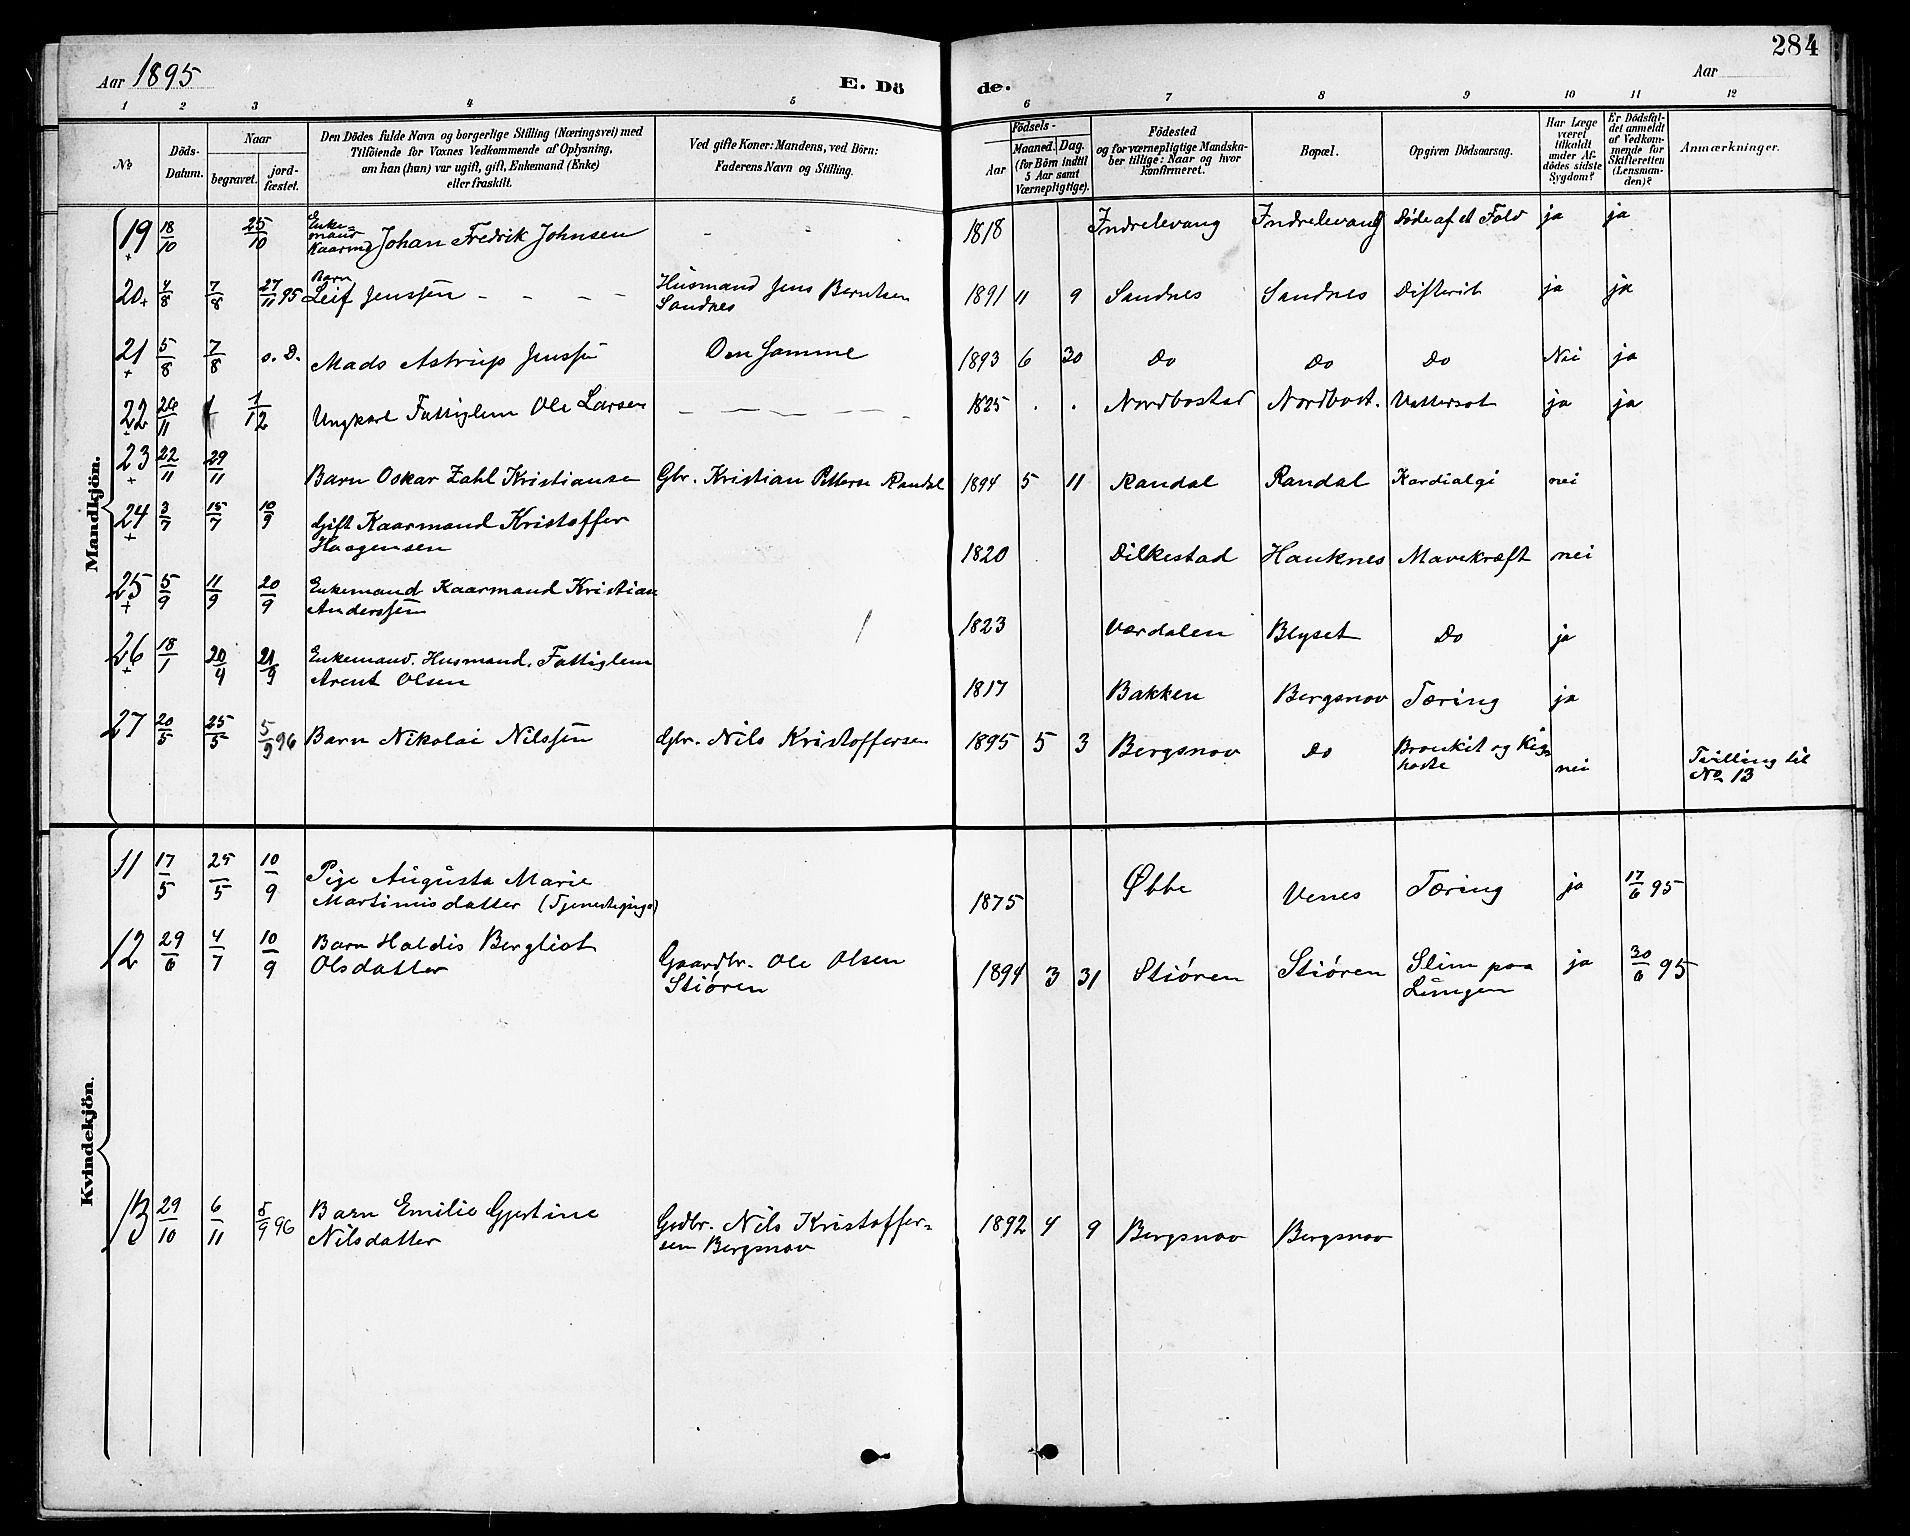 284
Aar 1895
E. Dö
de.
Aar
1 2 3 4 5 6 7 8 9 10 11 12
No
Döds-
Datum.
Naar
begravet.
jord-
fæstet.
Den Dödes fulde Navn og borgerlige Stilling (Næringsvei) med
Tilföiende for Voxnes Vedkommende af Oplysning,
om han (hun) var ugift, gift, Enkemand (Enke)
eller fraskilt.
Ved gifte Koner: Mandens, ved Börn:
Faderens Navn og Stilling.
Födsels-
Aar
Maaned. Dag.
(for Börn indtil
5 Aar samt
Værnepligtige).
Födested
og for værnepligtige Mandska-
ber tillige: Naar og hvor
konfirmeret.
Bopæl.
Opgiven Dödsaarsag.
Har Læge
været
tilkaldt
under Af-
dödes sidste
Sygdom?
Er Dödsfal-
det anmeldt
af Vedkom-
mende for
Skifteretten
(Lensman-
den)?
Anmærkninger.
Mandkjön.
19 + 18/10 25/10 Enke-
mand
Kaarmd Johan Fredrik Johnsen - - - 1818 Indrelevang Indrelevang Døde af et Fald ja ja
20 + 4/8 7/8 27/11 95 Barn
Leif Jenssen - - - - Husmand Jens Berntsen
Sandnes 1891 11 9 Sandnes Sandnes Difterit ja ja
21 + 5/8 7/8 s. D. Mads Astrup Jenssen Den Samme 1893 6 30 Do Do Do Nei ja
22 + 26/11 1/12 Ungkarl Fattiglem Ole Larsen - - - - - 1825 . . Nordbostad Nordbost. Vattersot ja ja
23 + 22/11 29/11 Barn Oskar Zahl Kristianse Gbr. Kristian Petterse Randal 1894 5 11 Randal Randal Kardialgi nei
24 + 3/7 15/7 10/9 Gift Kaarmand Kristoffer
Haagensen 1820 . Dilkestad Hauknes Mavekræft nei
25 + 5/9 11/9 20/9 Enkemand Kaarmand Kristian
Anderssen 1823 Værdalen Blyset Do ja
26 + 18/1 20/4 21/9 Enkemand. Husmand. Fattiglem
Arent Olsen 1817 Bakken Bergsnov Tæring ja
27 20/5 25/5 5/9 96 Barn Nikolai Nilssen Gbr. Nils Kristoffersen 1895 5 3 Bergsnov Do Bronkit og Kig
hoste nei Tvilling til
No 13
Kvindekjön.
11 17/5 25/5 10/9 Pige Augusta Marie
Martinusdatter (Tjenestepige) 1875 Øbbe Venes Tæring ja 17/6 95
12 29/6 4/7 10/9 Barn Haldis Bergliot
Olsdatter Gaardbr. Ole Olsen
Stiøren 1894 3 31 Stiøren Stiøren Slim paa
Lungen ja 30/6 95
13 29/10 6/11 5/9 96 Barn Emilie Gjertine
Nilsdatter Grdbr. Nils Kristoffer-
sen Bergsnov 1892 4 9 Bergsnov Bergsnov